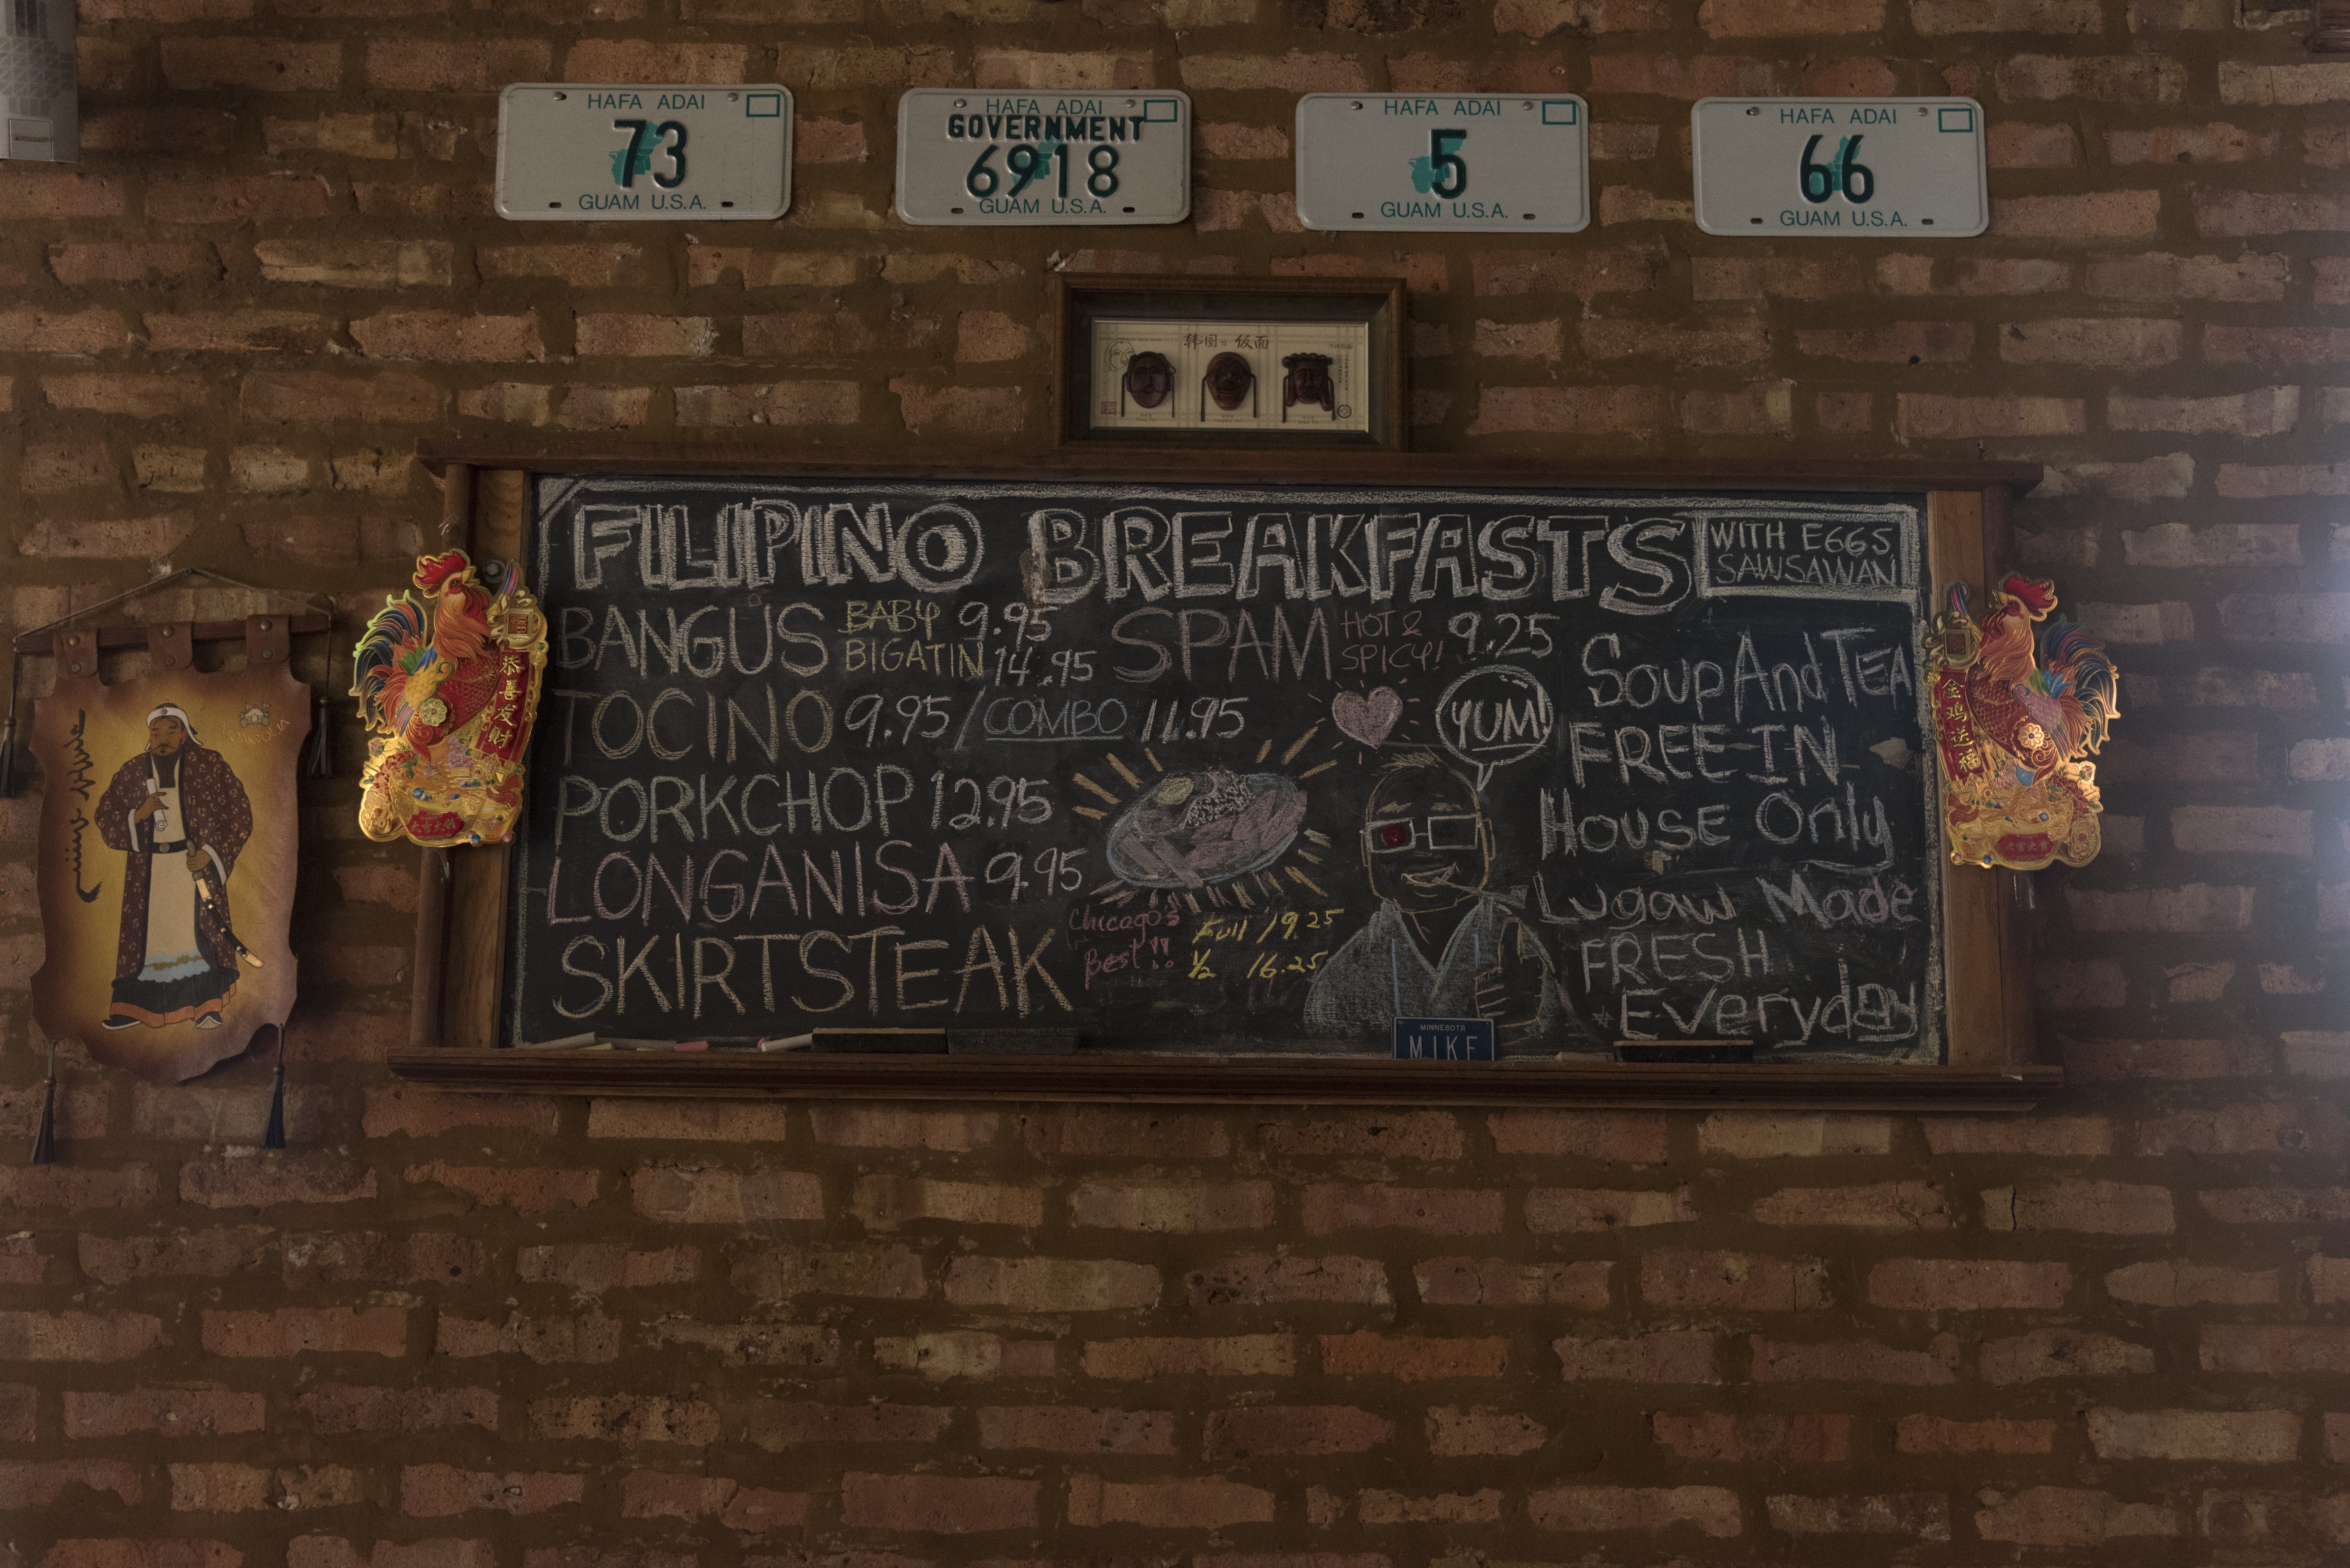 HAFA ADAI
73
GUAM U.S.A.
HAFA ADAI
GOVERNMENT
6918
GUAM U.S.A.
HAFA ADAI
5
GUAM U.S.A.
HAFA ADAI
66
GUAM U.S.A.
FILIPINO BREAKFASTS
WITH EGGS
SAWSAWAN
BANGUS BABY 9.95
BIGATIN 14.95
SPAM HOT & SPICY! 9.25
TOCINO 9.95/COMBO 11.95
PORKCHOP 12.95
LONGANISA 9.95
SKIRTSTEAK Chicago's Best!!
Full 19.25
1/2 16.25
YUM!
Soup And TEA
FREE IN
House Only
Lugaw Made
FRESH
Everyday
MINNESOTA
MIKE
恭喜发财
金鸡送福